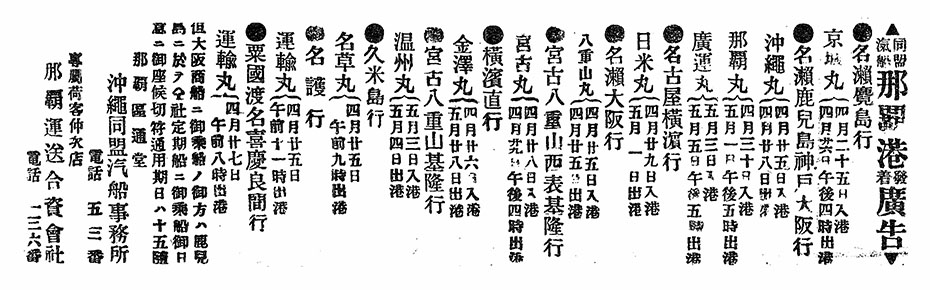 ▲同盟汽船那覇港發着廣告▼
●名瀨鹿兒島行
京城丸 四月二十五日入港
四月廿六日午後四時出港
●名瀨鹿兒島神戶大阪行
沖繩丸 四月廿五日入港
四月廿八日出港
那覇丸 四月三十日入港
五月一日午後五時出港
廣運丸 五月三日入港
五月五日午後五時出港
●名古屋橫濱行
日米丸 四月廿九日入港
五月一日出港
●名瀨大阪行
八重山丸 四月廿五日入港
四月廿八日出港
●宮古八重山西表基隆行
宮古丸 四月廿六日午後四時出港
●橫濱直行
金澤丸 四月廿六日入港
五月廿八日出港
●宮古八重山基隆行
温州丸 五月三日入港
五月四日出港
●久米島行
名草丸 四月廿五日
午前九時出港
●名護行
運輸丸 四月廿五日
午前十一時出港
●粟國渡名喜慶良間行
運輸丸 四月廿七日
午前八時出港
但大阪商船ニ御乘船ノ御方ハ鹿兒
島ニ於テ仝社定期船ニ御乘船御日
意ニ御座候切符通用期日ハ十五隨
那覇區通堂
沖繩同盟汽船事務所
電話 五三番
專屬荷客仲次店
那覇運送合資會社
電話 一三六番